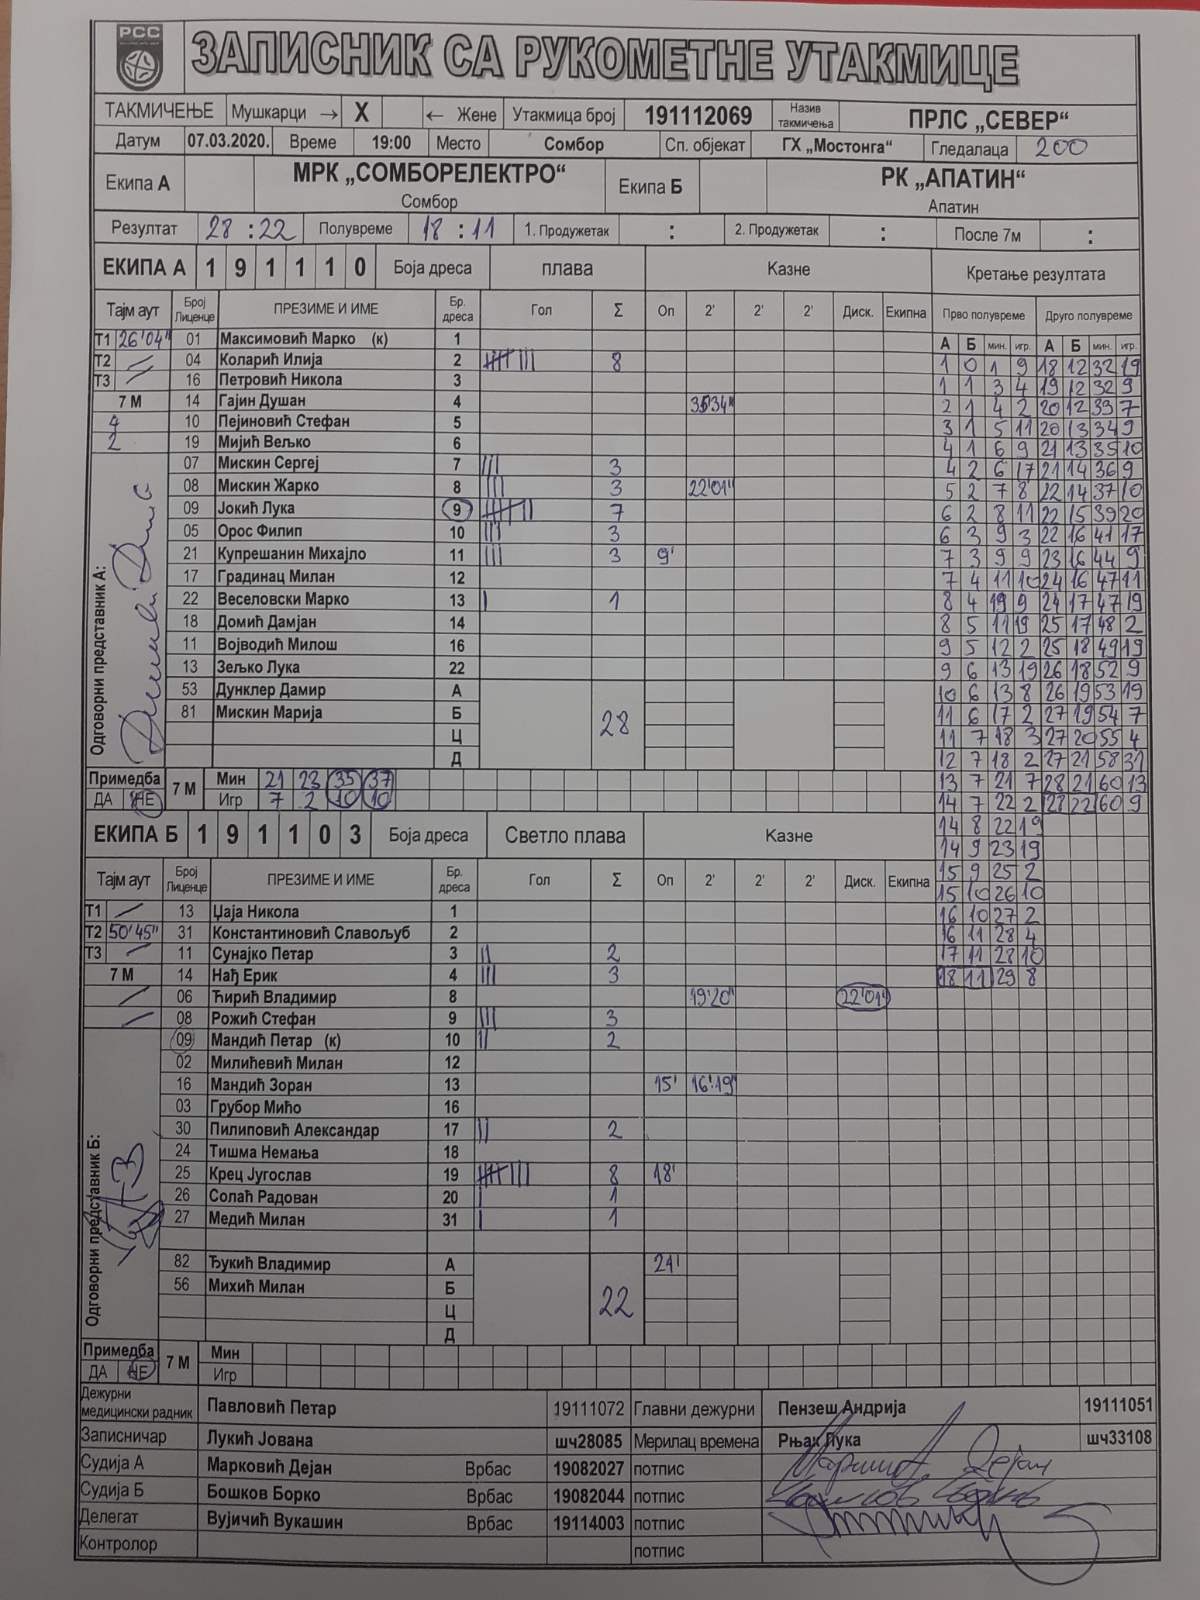 РСС
ЗАПИСНИК СА РУКОМЕТНЕ УТАКМИЦЕ
ТАКМИЧЕЊЕ Мушкарци → X ← Жене Утакмица број 191112069 Назив такмичења ПРЛС „СЕВЕР“
Датум 07.03.2020. Време 19:00 Место Сомбор Сп. објекат ГХ „Мостонга“ Гледалаца 200
Екипа А МРК „СОМБОРЕЛЕКТРО“ Сомбор Екипа Б РК „АПАТИН“ Апатин
Резултат 28 : 22 Полувреме 18 : 11 1. Продужетак : 2. Продужетак : После 7м :
ЕКИПА А 1 9 1 1 1 0 Боја дреса плава Казне Кретање резултата
Тајм аут Број Лиценце ПРЕЗИМЕ И ИМЕ Бр. дреса Гол Σ Оп 2' 2' 2' Диск. Екипна Прво полувреме Друго полувреме
А Б мин. игр. А Б мин. игр.
Т1 26'04" 01 Максимовић Марко (к) 1
Т2 04 Коларић Илија 2 8
Т3 16 Петровић Никола 3
7 М 14 Гајин Душан 4 35'34"
4 10 Пејиновић Стефан 5
2 19 Мијић Вељко 6
07 Мискин Сергеј 7 3
08 Мискин Жарко 8 3 22'01"
09 Јокић Лука 9 7
05 Орос Филип 10 3
21 Купрешанин Михајло 11 3 9'
17 Градинац Милан 12
22 Веселовски Марко 13 1
18 Домић Дамјан 14
11 Војводић Милош 16
13 Зељко Лука 22
53 Дунклер Дамир А
81 Мискин Марија Б 28
Ц
Д
Одговорни представник А:
Примедба ДА НЕ 7 М Мин 21 23 35 37
Игр 7 2 10 10
1 0 1 9 18 12 32 19
1 1 3 4 19 12 32 9
2 1 4 2 20 12 33 7
3 1 5 11 20 13 34 9
4 1 6 9 21 13 35 10
4 2 6 17 21 14 36 9
5 2 7 8 22 14 37 10
6 2 8 11 22 15 39 20
6 3 9 3 22 16 41 17
7 3 9 9 23 16 44 9
7 4 11 10 24 16 47 11
8 4 9 24 17 47 19
8 5 11 19 25 17 48 2
9 5 12 2 25 18 49 19
9 6 13 19 26 18 52 9
10 6 13 8 26 19 53 19
11 6 17 2 27 19 54 7
11 7 18 3 27 20 55 4
12 7 18 2 27 21 58 31
13 7 21 7 28 21 60 13
14 7 22 2 28 22 60 9
14 8 22 19
14 9 23 19
15 9 25 2
15 10 26 10
16 10 27 2
16 11 28 4
17 11 28 10
18 11 29 8
ЕКИПА Б 1 9 1 1 0 3 Боја дреса Светло плава Казне
Тајм аут Број Лиценце ПРЕЗИМЕ И ИМЕ Бр. дреса Гол Σ Оп 2' 2' 2' Диск. Екипна
Т1 13 Џаја Никола 1
Т2 50'45" 31 Константиновић Славољуб 2
Т3 11 Сунајко Петар 3 2
7 М 14 Нађ Ерик 4 3
06 Ћирић Владимир 8 19'20" 22'01"
08 Рожић Стефан 9 3
09 Мандић Петар (к) 10 2
02 Милићевић Милан 12
16 Мандић Зоран 13 15' 16'19"
03 Грубор Мићо 16
30 Пилиповић Александар 17 2
24 Тишма Немања 18
25 Крец Југослав 19 8 18'
26 Солаћ Радован 20 1
27 Медић Милан 31 1
82 Ђукић Владимир А 21'
56 Михић Милан Б 22
Ц
Д
Одговорни представник Б:
Примедба ДА НЕ 7 М Мин
Игр
Дежурни медицински радник Павловић Петар 19111072 Главни дежурни Пензеш Андрија 19111051
Записничар Лукић Јована шч28085 Мерилац времена Рњах Лука шч33108
Судија А Марковић Дејан Врбас 19082027 потпис
Судија Б Бошков Борко Врбас 19082044 потпис
Делегат Вујичић Вукашин Врбас 19114003 потпис
Контролор потпис